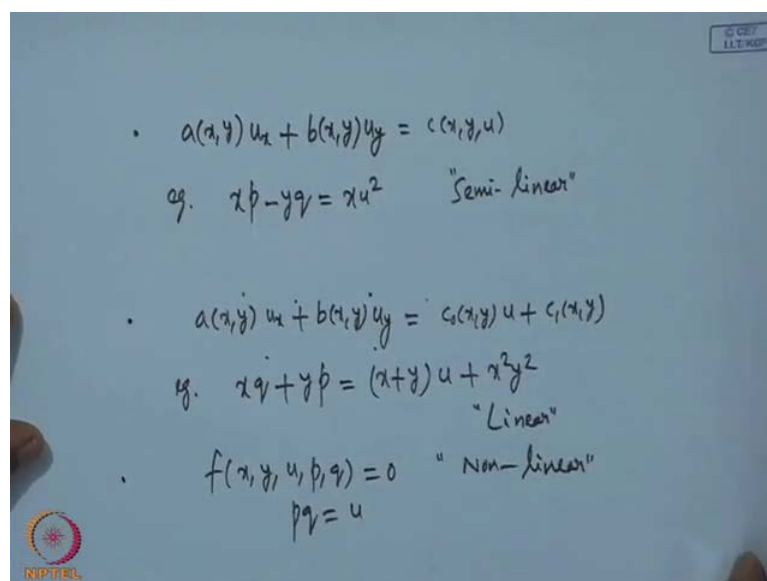 © CET
I.I.T. KGP
• a(x,y) uₓ + b(x,y) u_y = c(x,y,u)
eg. xp - yq = xu² "Semi-linear"
• a(x,y) uₓ + b(x,y) u_y = c₀(x,y) u + c₁(x,y)
eg. xq + yp = (x+y) u + x²y²
"Linear"
• f(x, y, u, p, q) = 0 "Non-linear"
pq = u
NPTEL